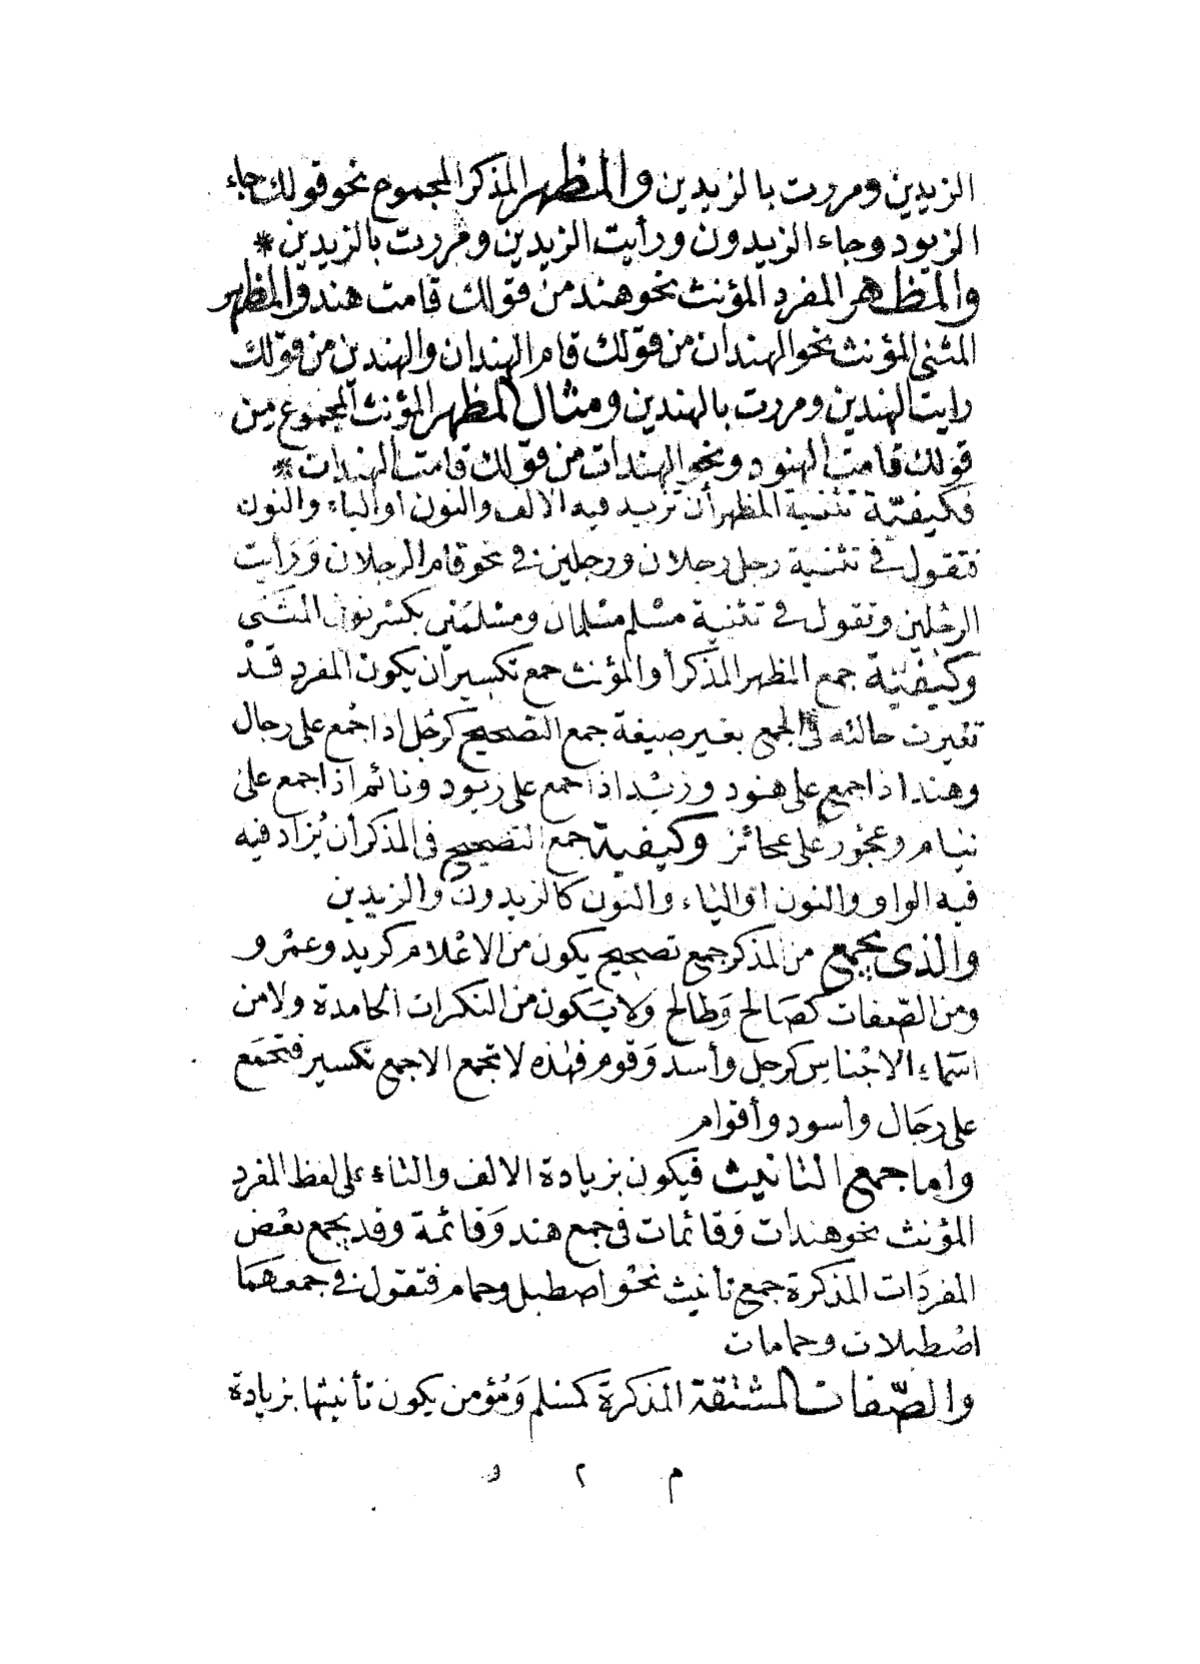 الزيدين ومررت بالزيدين والمظهر المذكر المجموع نحو قولك جاء
الزيود وجاء الزيدون ورأيت الزيدين ومررت بالزيدين *
والمظهر المفرد المؤنث نحو هند من قولك قامت هند والمظهر
المثنى المؤنث نحو الهندان من قولك قام الهندان والهندين من قولك
رايت الهندين ومررت بالهندين ومثال المظهر المؤنث المجموع من
قولك قامت الهنود ونحو الهندات من قولك قامت الهندات *
فكيفيّة تثنية المظهر أن تزيد فيه الالف والنون او الياء والنون
فتقول في تثنية رجل رجلان ورجلين في نحو قام الرجلان وَرَأيت
الرجْلين وتقول في تثنية مسْلم مسْلمان ومسْلمَين بكسْر نون المثنَّى
وكيفيّة جمع المظهر المذكر أو المؤنث جمع تكسير أن يكون المفرد قدْ
تغيرت حالته في الجمع بغير صيغة جمع التصحيح كرجُل اذا جُمع على رجال
وهند اذا جمع على هنود وزيْد اذا جمع على زيود ونائم اذا جمع على
نيام وعجُوز على عجائز وكيفية جمع التصحيح في المذكر أن يُزاد فيه
فيه الواو والنون او الياء والنون كالزيدون والزيدين
والذي يجمع من المذكر جمع تصحيح يكون من الاعْلام كزيد وعمْرو
ومن الصّفات كصَالح وَطالح وَلا يَكون من النكرات الجامدة ولا من
اسَماء الاجْناس كرجل وأسد وَقوم فهٰذه لا تجمع الا جمع تكسير فتجمَع
على رجَال وأسود وأقوام
واما جمع التانيث فيكون بزيادة الالف والتاء على لفظ المفرد
المؤنث نحو هندات وَقائمات في جمع هند وَقائمة وقد يجمع بعْض
المفردَات المذكرة جمع تأنيث نحْو اصطبل وحمام فتقول في جمعهمَا
اصْطبلات وحمامات
والصّفات المشتقة المذكرة كمسْلم وَمُؤمن يكون تأنيثها بزيادة
م ٢ و